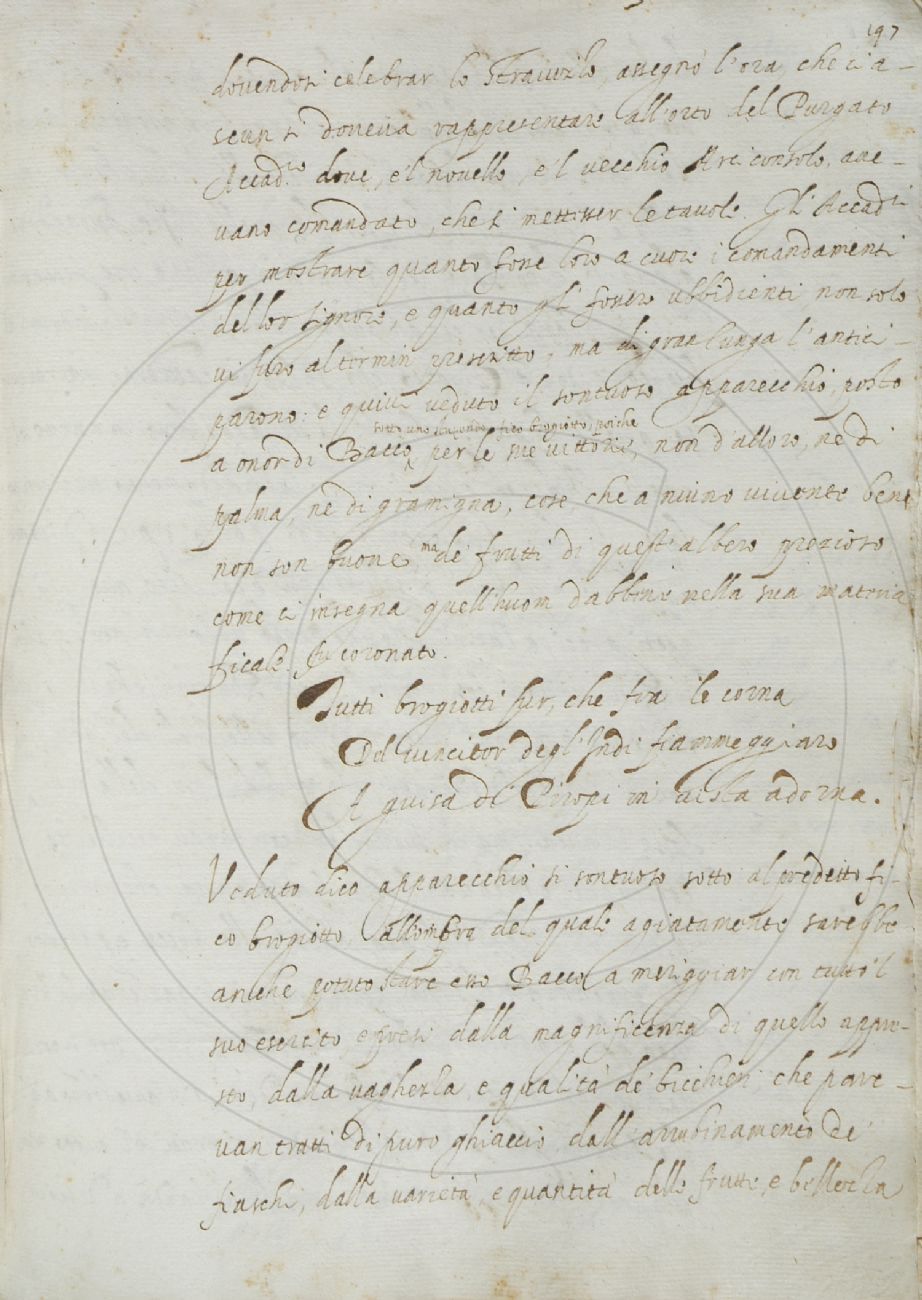 197
dovendosi celebrar lo Stravizzo, assegnò l'ora che cia-
scun si doveva rappresentare all'orto del Purgato
Accad.co dove, e 'l novello, e 'l vecchio Arciconsolo, ave-
vano comandato, che si mettesser le tavole. Gl'Accad.ci
per mostrare quanto fosse loro a cuore i comandamenti
del lor signore, e quanto gli fossero ubbidienti non solo
vi furo al termin prescritto, ma di gran lunga l'antici-
parono: e quivi veduto il sontuoso apparecchio, posto
sotto uno stupendo fico brogiotto, poiche
a onor di Bacco per le sue vittorie, non d'alloro, ne di
palma, ne di gramigna, cose, che a niuno vivente bene
non son buone, ma de' frutti di quest'albero prezioso
come ci insegna quell'huom dabbene nella sua materia
ficale fu coronato.
Tutti brogiotti fur, che fra le corna
Del vincitor degl'Indi fiammeggiaro
A guisa di Piropi in vista adorna.
Veduto dico apparecchio sì sontuoso sotto al predetto fi-
co brogiotto, all'ombra del quale agiatamente sarebbe
anche potuto stare esso Bacco a meriggiar con tutto 'l
suo esercito, e presi dalla magnificenza di quello appre-
sto, dalla vaghezza, e qualità de' bicchieri, che pare-
van tratti di puro ghiaccio, dall'arrubinamento de'
fiaschi, dalla varietà, e quantità delle frutte, e bellezza